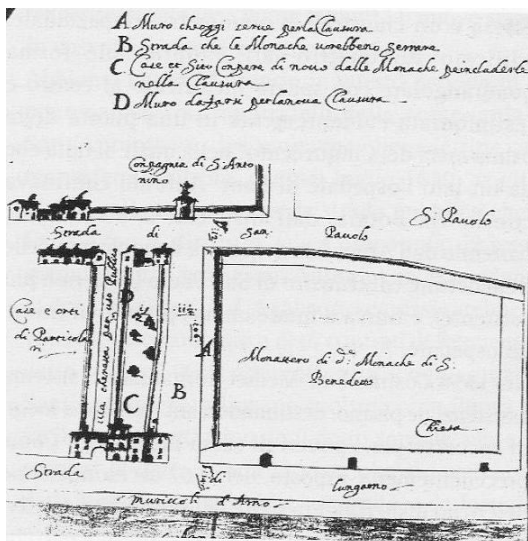 A Muro che oggi serra per la Clausura
B Strada che le Monache vorebbono serrare
C Case et Sito Conpere di nouo dalle Monache per includerle
nella Clausura
D Muro da farsi per la noua Clausura
Conpagnia di S. Anto
nino
S. Pauolo
Strada di San Pauolo
Case e orti
di Particola
ri
D
A
Monastero di d.e Monache di S.
Benedetto
C
B
Chiesa
Strada di lungarno
muriccioli d'Arno